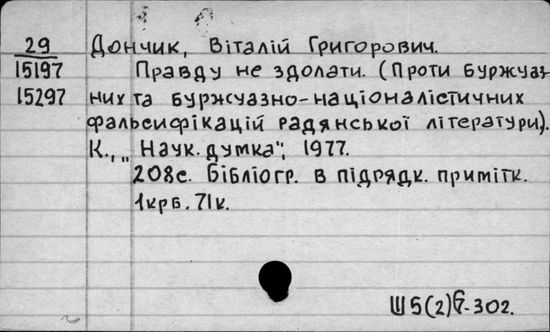 29 Дончик, Віталій Григорович.
15197 Правду не здолати. (Проти буржуаз-
15297 них та буржуазно-націоналістичних
фальсифікацій радянської літератури).
К., „Наук. думка", 1977.
208с. Бібліогр. в підрядк. примітк.
1крб. 71к.
Ш5(2)6-302.